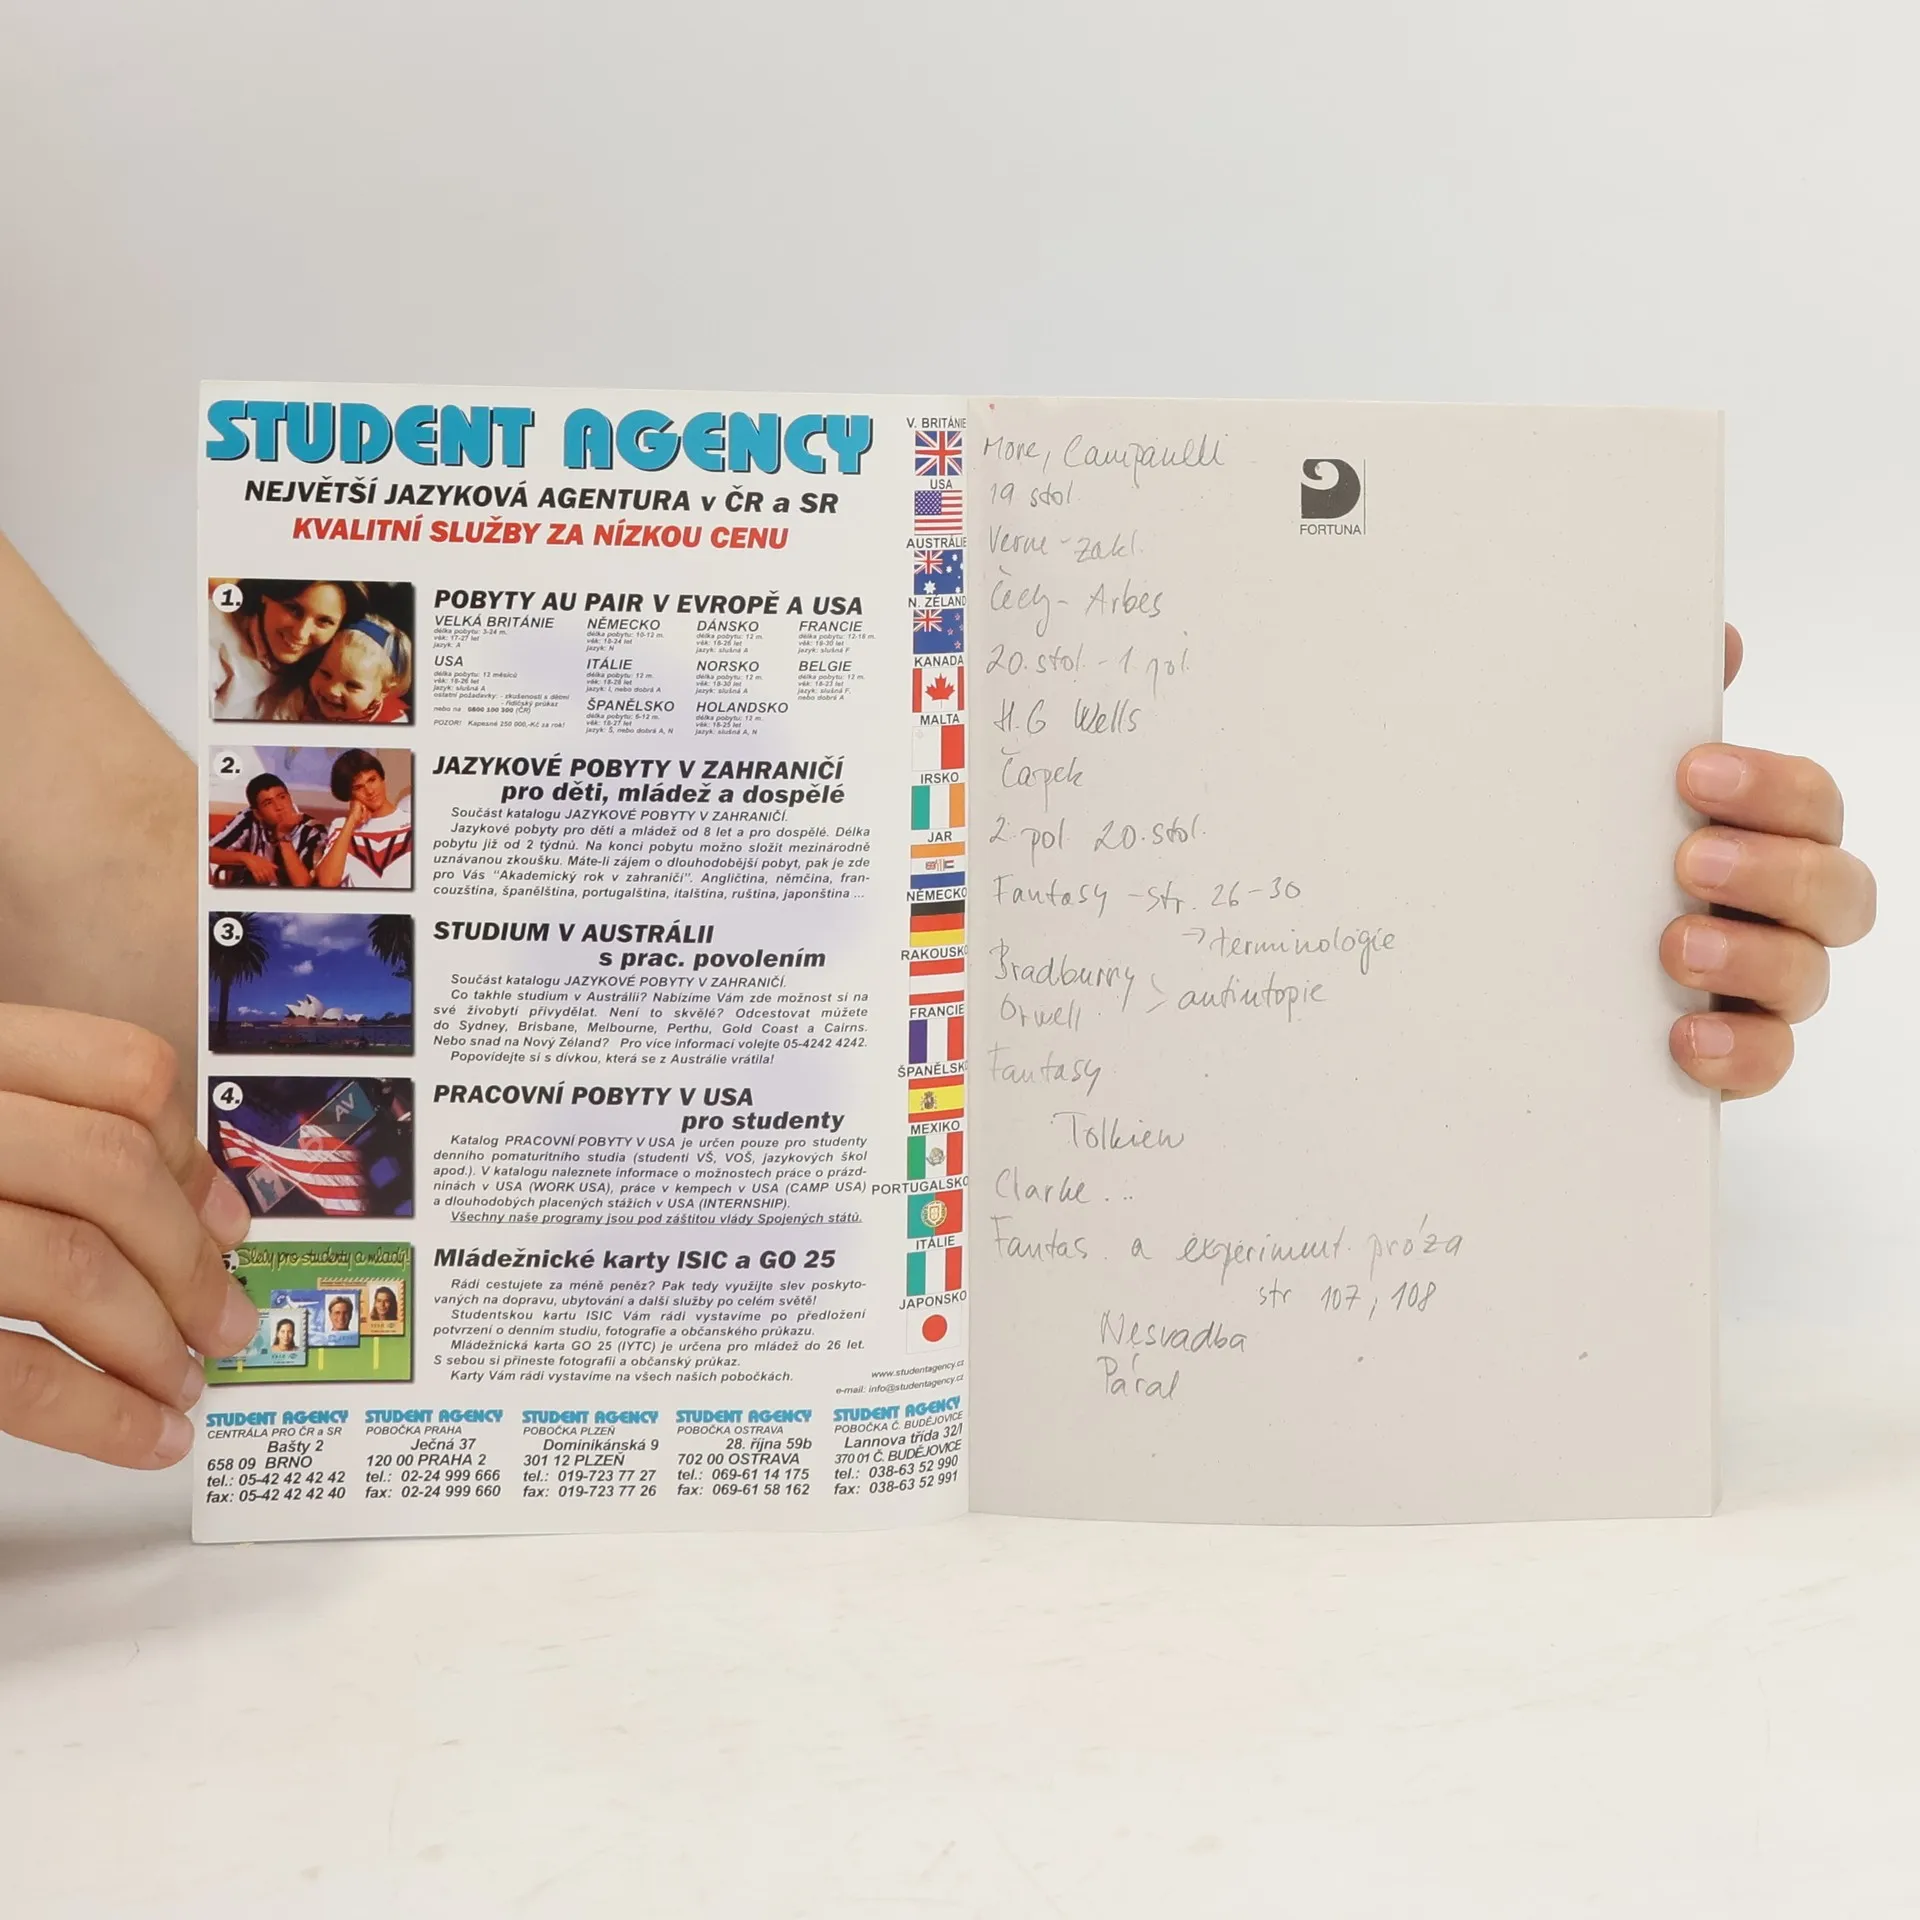 STUDENT AGENCY
NEJVĚTŠÍ JAZYKOVÁ AGENTURA v ČR a SR
KVALITNÍ SLUŽBY ZA NÍZKOU CENU
1.
POBYTY AU PAIR V EVROPĚ A USA
VELKÁ BRITÁNIE
délka pobytu: 3-24 m.
věk: 17-27 let
jazyk: A
NĚMECKO
délka pobytu: 10-12 m.
věk: 18-24 let
jazyk: N
DÁNSKO
délka pobytu: 12 m.
jazyk: slušná A
FRANCIE
jazyk: slušná F
USA
délka pobytu: 12 měsíců
věk: 18-26 let
jazyk: slušná A
ostatní požadavky: - zkušenosti s dětmi
- řidičský průkaz
nebo na 0800 100 300 (ČR)
POZOR! Kapesné 250 000,-Kč za rok!
ITÁLIE
délka pobytu: 12 m.
jazyk: I, nebo dobrá A
NORSKO
délka pobytu: 12 m.
věk: 18-30 let
jazyk: slušná A
BELGIE
délka pobytu: 12 m.
jazyk: slušná F,
nebo dobrá A
ŠPANĚLSKO
délka pobytu: 6-12 m.
věk: 18-27 let
jazyk: Š, nebo dobrá A, N
HOLANDSKO
délka pobytu: 12 m.
věk: 18-25 let
jazyk: slušná A, N
2.
JAZYKOVÉ POBYTY V ZAHRANIČÍ
pro děti, mládež a dospělé
Součást katalogu JAZYKOVÉ POBYTY V ZAHRANIČÍ.
Jazykové pobyty pro děti a mládež od 8 let a pro dospělé. Délka
pobytu již od 2 týdnů. Na konci pobytu možno složit mezinárodně
uznávanou zkoušku. Máte-li zájem o dlouhodobější pobyt, pak je zde
pro Vás "Akademický rok v zahraničí". Angličtina, němčina, fran-
couzština, španělština, portugalština, italština, ruština, japonština ...
3.
STUDIUM V AUSTRÁLII
s prac. povolením
Součást katalogu JAZYKOVÉ POBYTY V ZAHRANIČÍ.
Co takhle studium v Austrálii? Nabízíme Vám zde možnost si na
své živobytí přivydělat. Není to skvělé? Odcestovat můžete
do Sydney, Brisbane, Melbourne, Perthu, Gold Coast a Cairns.
Nebo snad na Nový Zéland? Pro více informací volejte 05-4242 4242.
Popovídejte si s dívkou, která se z Austrálie vrátila!
4.
PRACOVNÍ POBYTY V USA
pro studenty
Katalog PRACOVNÍ POBYTY V USA je určen pouze pro studenty
denního pomaturitního studia (studenti VŠ, VOŠ, jazykových škol
apod.). V katalogu naleznete informace o možnostech práce o prázd-
ninách v USA (WORK USA), práce v kempech v USA (CAMP USA)
a dlouhodobých placených stážích v USA (INTERNSHIP).
Všechny naše programy jsou pod záštitou vlády Spojených států.
5.
Slevy pro studenty a mladý!
Mládežnické karty ISIC a GO 25
Rádi cestujete za méně peněz? Pak tedy využijte slev poskyto-
vaných na dopravu, ubytování a další služby po celém světě!
Studentskou kartu ISIC Vám rádi vystavíme po předložení
potvrzení o denním studiu, fotografie a občanského průkazu.
Mládežnická karta GO 25 (IYTC) je určena pro mládež do 26 let.
S sebou si přineste fotografii a občanský průkaz.
Karty Vám rádi vystavíme na všech našich pobočkách.
www.studentagency.cz
e-mail: info@studentagency.cz
STUDENT AGENCY
CENTRÁLA PRO ČR a SR
Bašty 2
658 09 BRNO
tel.: 05-42 42 42 42
fax: 05-42 42 42 40
STUDENT AGENCY
POBOČKA PRAHA
Ječná 37
120 00 PRAHA 2
tel.: 02-24 999 666
fax: 02-24 999 660
STUDENT AGENCY
POBOČKA PLZEŇ
Dominikánská 9
301 12 PLZEŇ
tel.: 019-723 77 27
fax: 019-723 77 26
STUDENT AGENCY
POBOČKA OSTRAVA
28. října 59b
702 00 OSTRAVA
tel.: 069-61 14 175
fax: 069-61 58 162
STUDENT AGENCY
POBOČKA Č. BUDĚJOVICE
Lannova třída 32/I
370 01 Č. BUDĚJOVICE
tel.: 038-63 52 990
fax: 038-63 52 991
V. BRITÁNIE
USA
AUSTRÁLIE
N. ZÉLAND
KANADA
MALTA
IRSKO
JAR
NĚMECKO
RAKOUSKO
FRANCIE
ŠPANĚLSKO
MEXIKO
PORTUGALSKO
ITÁLIE
JAPONSKO
FORTUNA
More, Campanelli
19. stol.
Verne - zakl.
Čechy - Arbes
20. stol. - 1 pol.
H.G Wells
Čapek
2. pol. 20. stol.
Fantasy - str. 26-30
→ terminologie
Bradburry > antiutopie
Orwell
Fantasy
Tolkien
Clarke ...
Fantas a experiment. próza
str 107, 108
Nesvadba
Páral